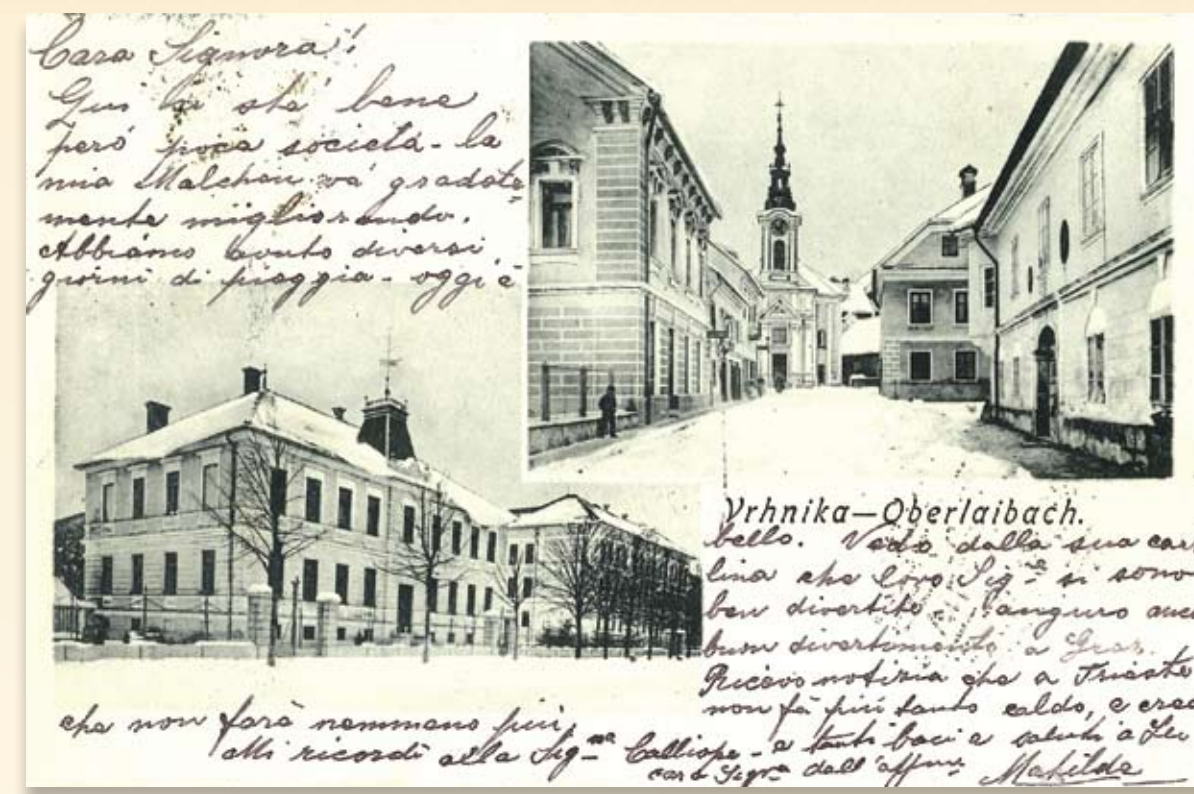 Cara Signora!
Qui si stà bene
però poca società - la
mia Malchen và gradata-
mente migliorando.
Abbiamo avuto diversi
giorni di pioggia - oggi è
Vrhnika—Oberlaibach.
bello. Vedo dalla sua car
lina che loro Sig.re si sono
ben divertite - auguro anc
buon divertimento a Graz.
Ricevo notizia che a Trieste
non fà più tanto caldo, e cred
che non farà nemmeno più,
Mi ricordi alla Sig.na Calliope - e tanti baci e saluti a Lei
cara Sigra dall'affma Matilde